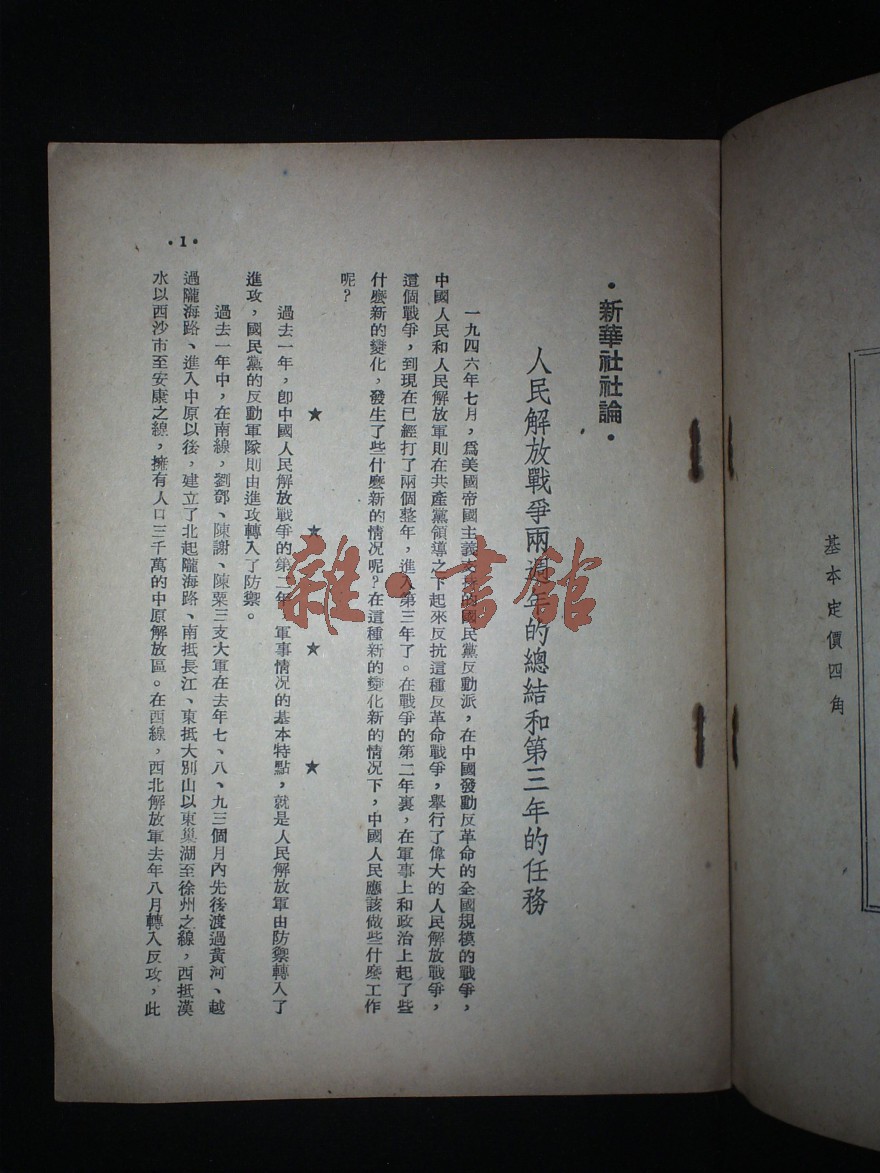 基本定價四角
·新華社社論·
人民解放戰爭兩週年的總結和第三年的任務
一九四六年七月，爲美國帝國主義支持的國民黨反動派，在中國發動反革命的全國規模的戰爭，
中國人民和人民解放軍則在共產黨領導之下起來反抗這種反革命戰爭，舉行了偉大的人民解放戰爭，
這個戰爭，到現在已經打了兩個整年，進入第三年了。在戰爭的第二年裏，在軍事上和政治上起了些
什麼新的變化，發生了些什麼新的情况呢？在這種新的變化新的情况下，中國人民應該做些什麼工作
呢？
★ ★ ★ ★
過去一年，卽中國人民解放戰爭的第二年，軍事情况的基本特點，就是人民解放軍由防禦轉入了
進攻，國民黨的反動軍隊則由進攻轉入了防禦。
過去一年中，在南線，劉鄧、陳謝、陳粟三支大軍在去年七、八、九三個月內先後渡過黃河、越
過隴海路、進入中原以後，建立了北起隴海路、南抵長江、東抵大別山以東巢湖至徐州之線，西抵漢
水以西沙市至安康之線，擁有人口三千萬的中原解放區。在西線，西北解放軍去年八月轉入反攻，此
·1·
雜·書館